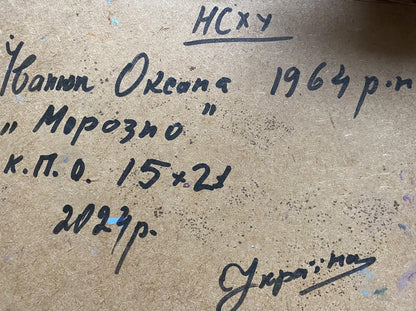 НСХУ
Іванюк Оксана 1964 р.н
„Морозно"
к.п.о. 15×21
2024р.
Україна